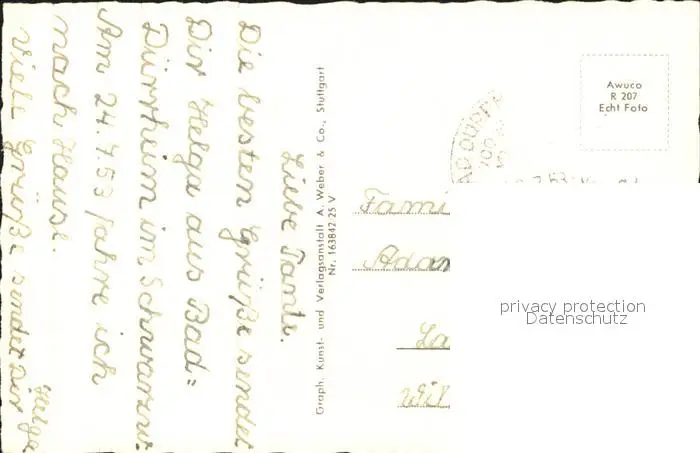 Liebe Tante.
Die besten Grüße sendet
Dir Helga aus Bad=
Dürrheim im Schwarzw.
Am 24.7.59 fahre ich
nach Hause.
Viele Grüße sendet Dir
Helga
Graph. Kunst- und Verlagsanstalt A. Weber & Co., Stuttgart
Nr. 163842 25 V
Awuco
R 207
Echt Foto
BAD DÜRR
Fami
Adam
La
Wil
privacy protection
Datenschutz